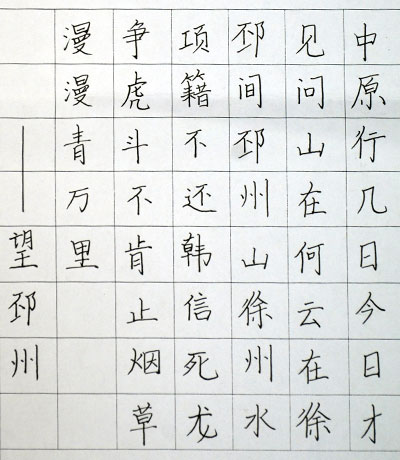 中原行几日今日才
见问山在何云在徐
邳间邳州山徐州水
项籍不还韩信死龙
争虎斗不肯止烟草
漫漫青万里
——望邳州